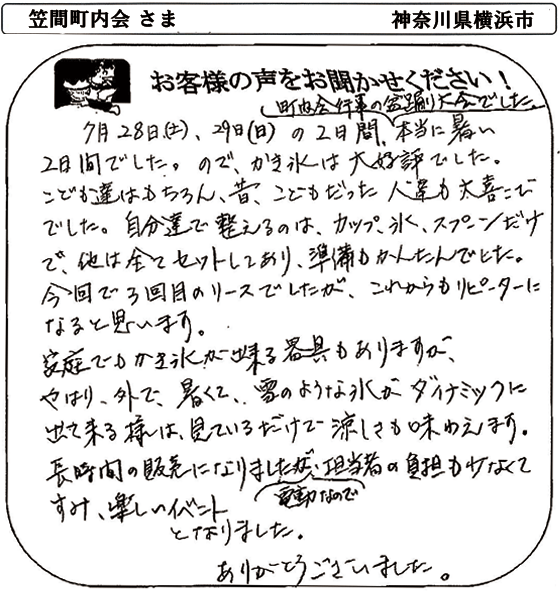 笠間町内会 さま
神奈川県横浜市
お客様の声をお聞かせください！
町内会行事の盆踊り大会でした。
7月28日(土)、29日(日)の2日間、本当に暑い
2日間でした。ので、かき氷は大好評でした。
こども達はもちろん、昔、こどもだった人達も大喜び
でした。自分達で整えるのは、カップ、氷、スプーンだけ
で、他は全てセットしてあり、準備もかんたんでした。
今回で3回目のリースでしたが、これからもリピーターに
なると思います。
家庭でもかき氷が出来る器具もありますが、
やはり、外で、暑くて、雪のような氷がダイナミックに
出て来る様は、見ているだけで涼しさも味わえます。
長時間の販売になりましたが、担当者の負担も少なくて
電動なので
すみ、楽しいイベント
となりました。
ありがとうございました。